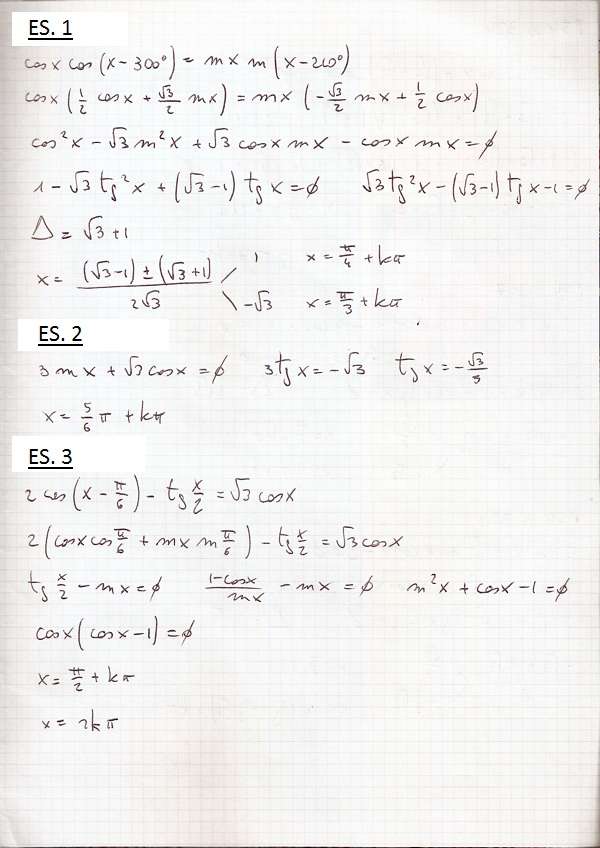 ES. 1
cosx cos (x-300°) = mx m (x-210°)
cosx (1/2 cosx + √3/2 mx) = mx (-√3/2 mx + 1/2 cosx)
cos²x - √3 m²x + √3 cosx mx - cosx mx = ∅
1 - √3 tg²x + (√3-1) tg x = ∅ √3 tg²x - (√3-1) tg x - 1 = ∅
Δ = √3+1
x = ((√3-1) ± (√3+1))/(2√3) 1 x = π/4 + kπ
-√3 x = π/3 + kπ
ES. 2
3 mx + √3 cosx = ∅ 3tg x = -√3 tg x = -√3/3
x = 5/6 π + kπ
ES. 3
2 cos (x - π/6) - tg x/2 = √3 cosx
2 (cosx cos π/6 + mx m π/6) - tg x/2 = √3 cosx
tg x/2 - mx = ∅ (1-cosx)/mx - mx = ∅ m²x + cosx - 1 = ∅
cosx (cosx - 1) = ∅
x = π/2 + kπ
x = 2kπ